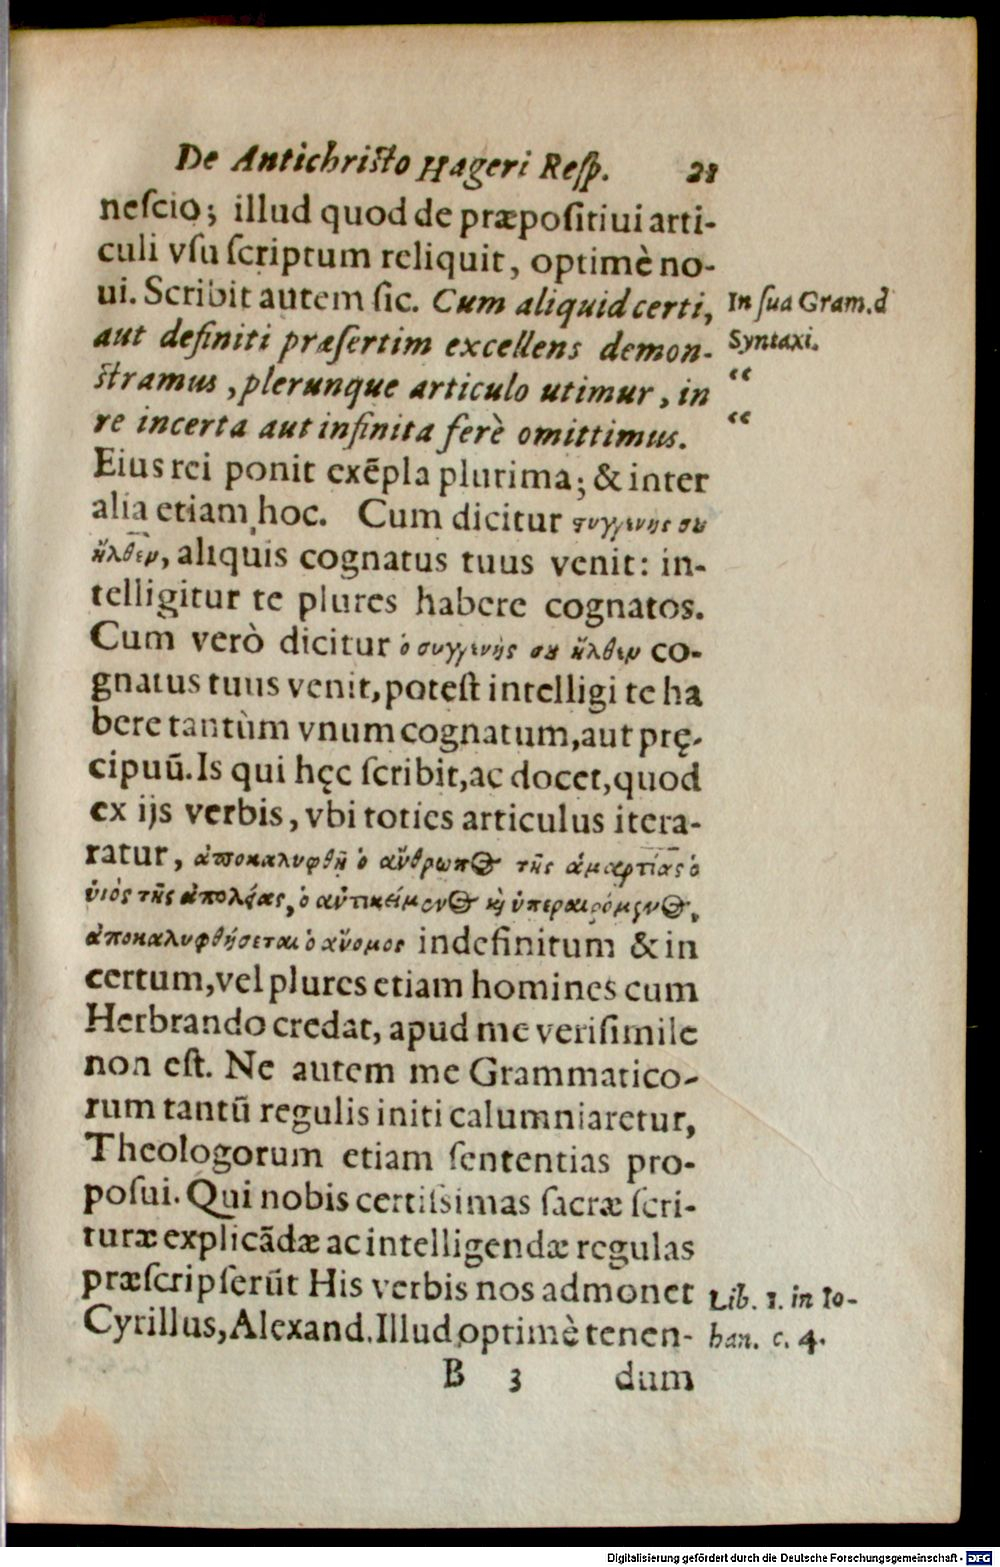 De Antichristo Hageri Resp. 21
nescio; illud quod de præpositiui arti-
culi vsu scriptum reliquit, optimè no-
ui. Scribit autem sic. Cum aliquid certi,
In sua Gram. d
aut definiti præsertim excellens demon-
Syntaxi.
stramus, plerunque articulo utimur, in
“
re incerta aut infinita ferè omittimus.
“
Eius rei ponit exẽpla plurima; & inter
alia etiam hoc. Cum dicitur συγγενής σȣ
ἦλθεν, aliquis cognatus tuus venit: in-
telligitur te plures habere cognatos.
Cum verò dicitur ὁ συγγενής σȣ ἦλθεν co-
gnatus tuus venit, potest intelligi te ha
bere tantùm vnum cognatum, aut prę-
cipuũ. Is qui hęc scribit, ac docet, quod
ex ijs verbis, vbi toties articulus itera-
ratur, ἀποκαλυφθῇ ὁ ἄνθρωπος τῆς ἁμαρτίας ὁ
ὑιὸς τῆς ἀπολείας, ὁ ἀντικείμενος καὶ ὑπεραιρόμενος,
ἀποκαλυφθήσεται ὁ ἄνομος indefinitum & in
certum, vel plures etiam homines cum
Herbrando credat, apud me verisimile
non est. Ne autem me Grammatico-
rum tantũ regulis initi calumniaretur,
Theologorum etiam sententias pro-
posui. Qui nobis certissimas sacræ scri-
turæ explicãdæ ac intelligendæ regulas
præscripserũt His verbis nos admonet
Lib. 1. in Io-
Cyrillus, Alexand. Illud optimè tenen-
han. c. 4.
B 3 dum
Digitalisierung gefördert durch die Deutsche Forschungsgemeinschaft - DFG